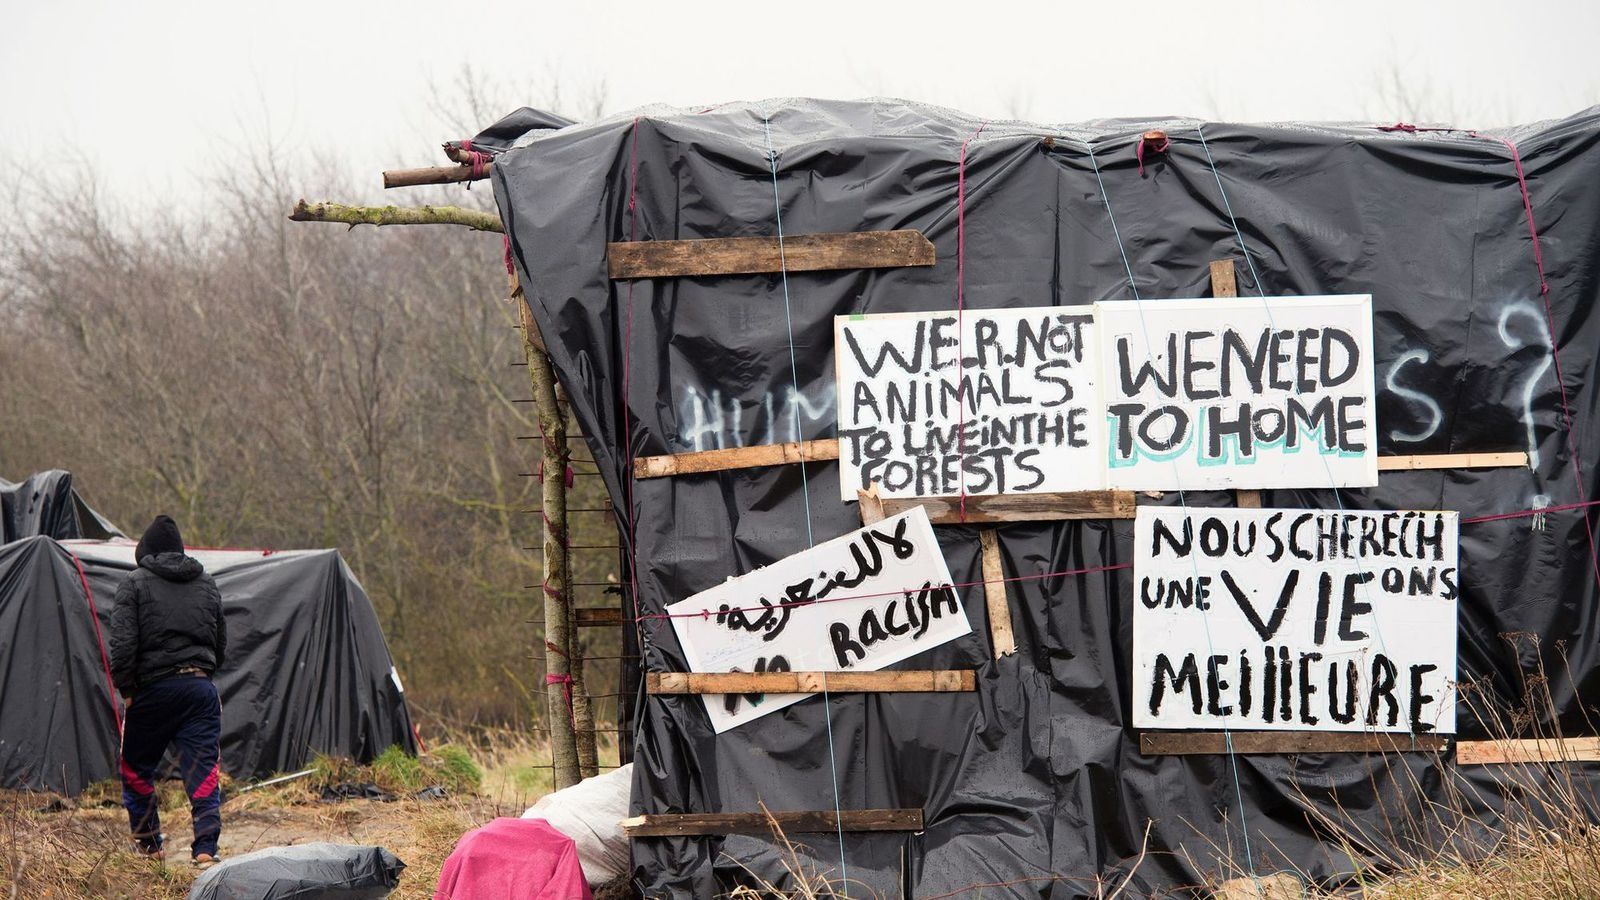 WE.R.NOT
ANiMALS
TO LiVEiNTHE
FORESTS
WENEED
TO HOME
HUM
S ?
لا للعنصرية
NO RACISM
NOUSCHERECH
ONS
UNE VIE
MEIllEURE